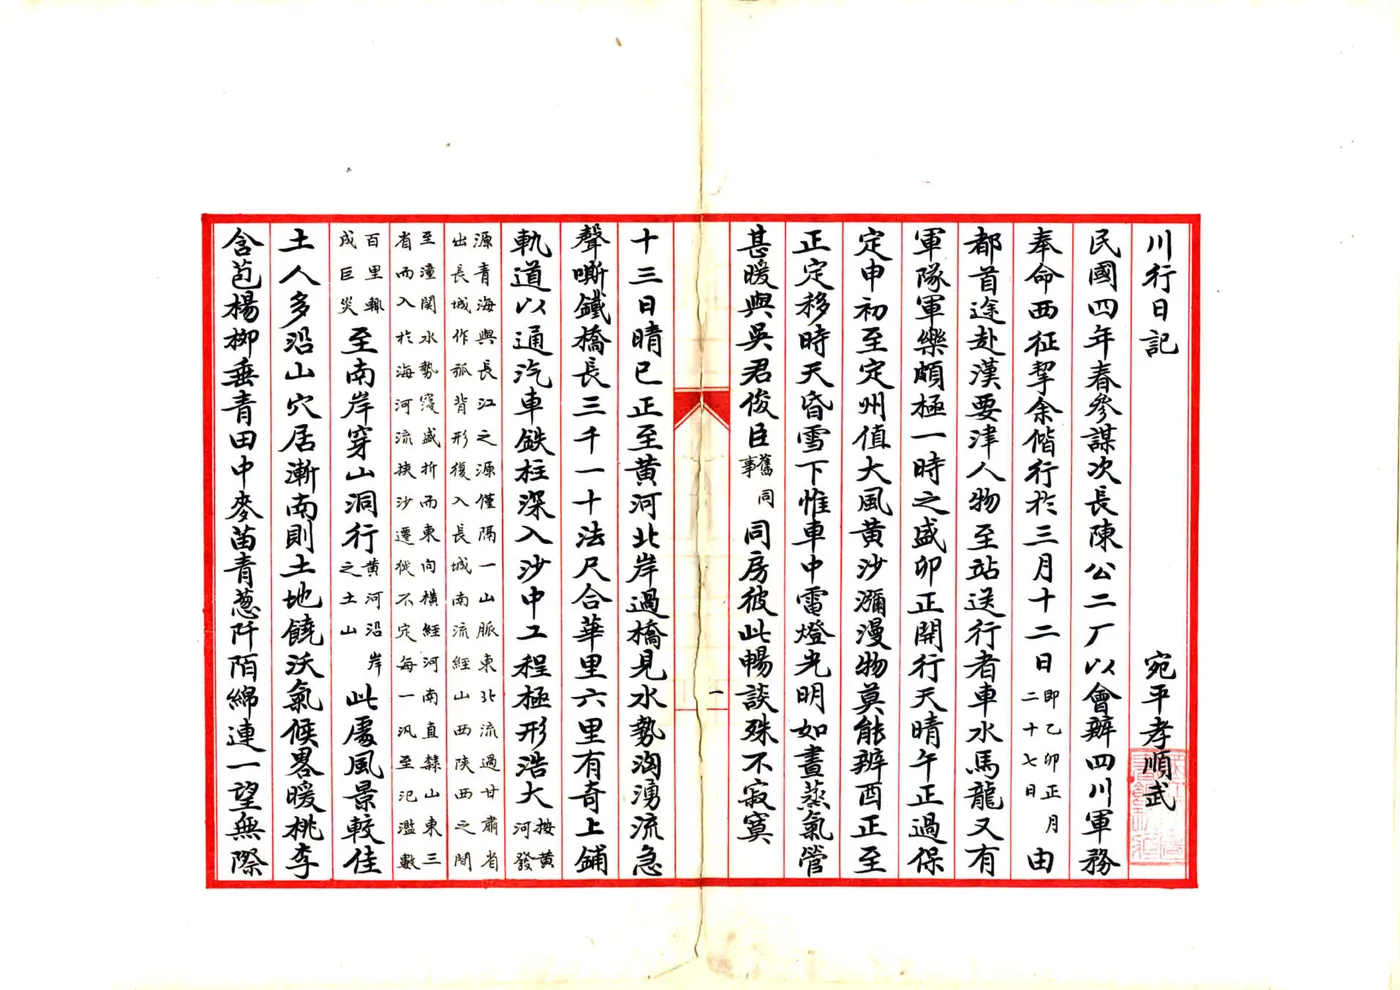 川行日記
宛平孝順武
民國四年春參謀次長陳公二厂以會辦四川軍務
奉命西征挈余偕行於三月十二日即乙卯正月二十七日由
都首途赴漢要津人物至站送行者車水馬龍又有
軍隊軍樂頗極一時之盛卯正開行天晴午正過保
定申初至定州值大風黄沙瀰漫物莫能辨酉正至
正定移時天昏雪下惟車中電燈光明如晝蒸氣管
甚暖與吳君俊臣舊同事同房彼此暢談殊不寂寞
一
十三日晴巳正至黄河北岸過橋見水勢洶湧流急
聲嘶鐵橋長三千一十法尺合華里六里有奇上鋪
軌道以通汽車鉄柱深入沙中工程極形浩大按黄河發
源青海與長江之源僅隔一山脈東北流過甘肅省
出長城作弧背形復入長城南流經山西陝西之間
至潼關水勢寖盛折而東向橫經河南直隸山東三
省而入於海河流挾沙遷徙不定每一汎至氾濫數
百里輒成巨災至南岸穿山洞行黄河沿岸之土山此處風景較佳
土人多沿山穴居漸南則土地饒沃氣候畧暖桃李
含苞楊柳垂青田中麥苗青葱阡陌綿連一望無際